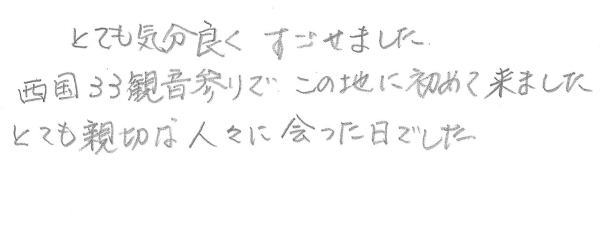 とても気分良く すごせました
西国33観音参りで この地に初めて来ました
とても親切な人々に会った日でした